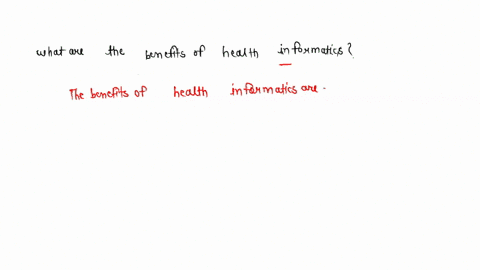 what are the benefits of health informatics?
The benefits of health informatics are-